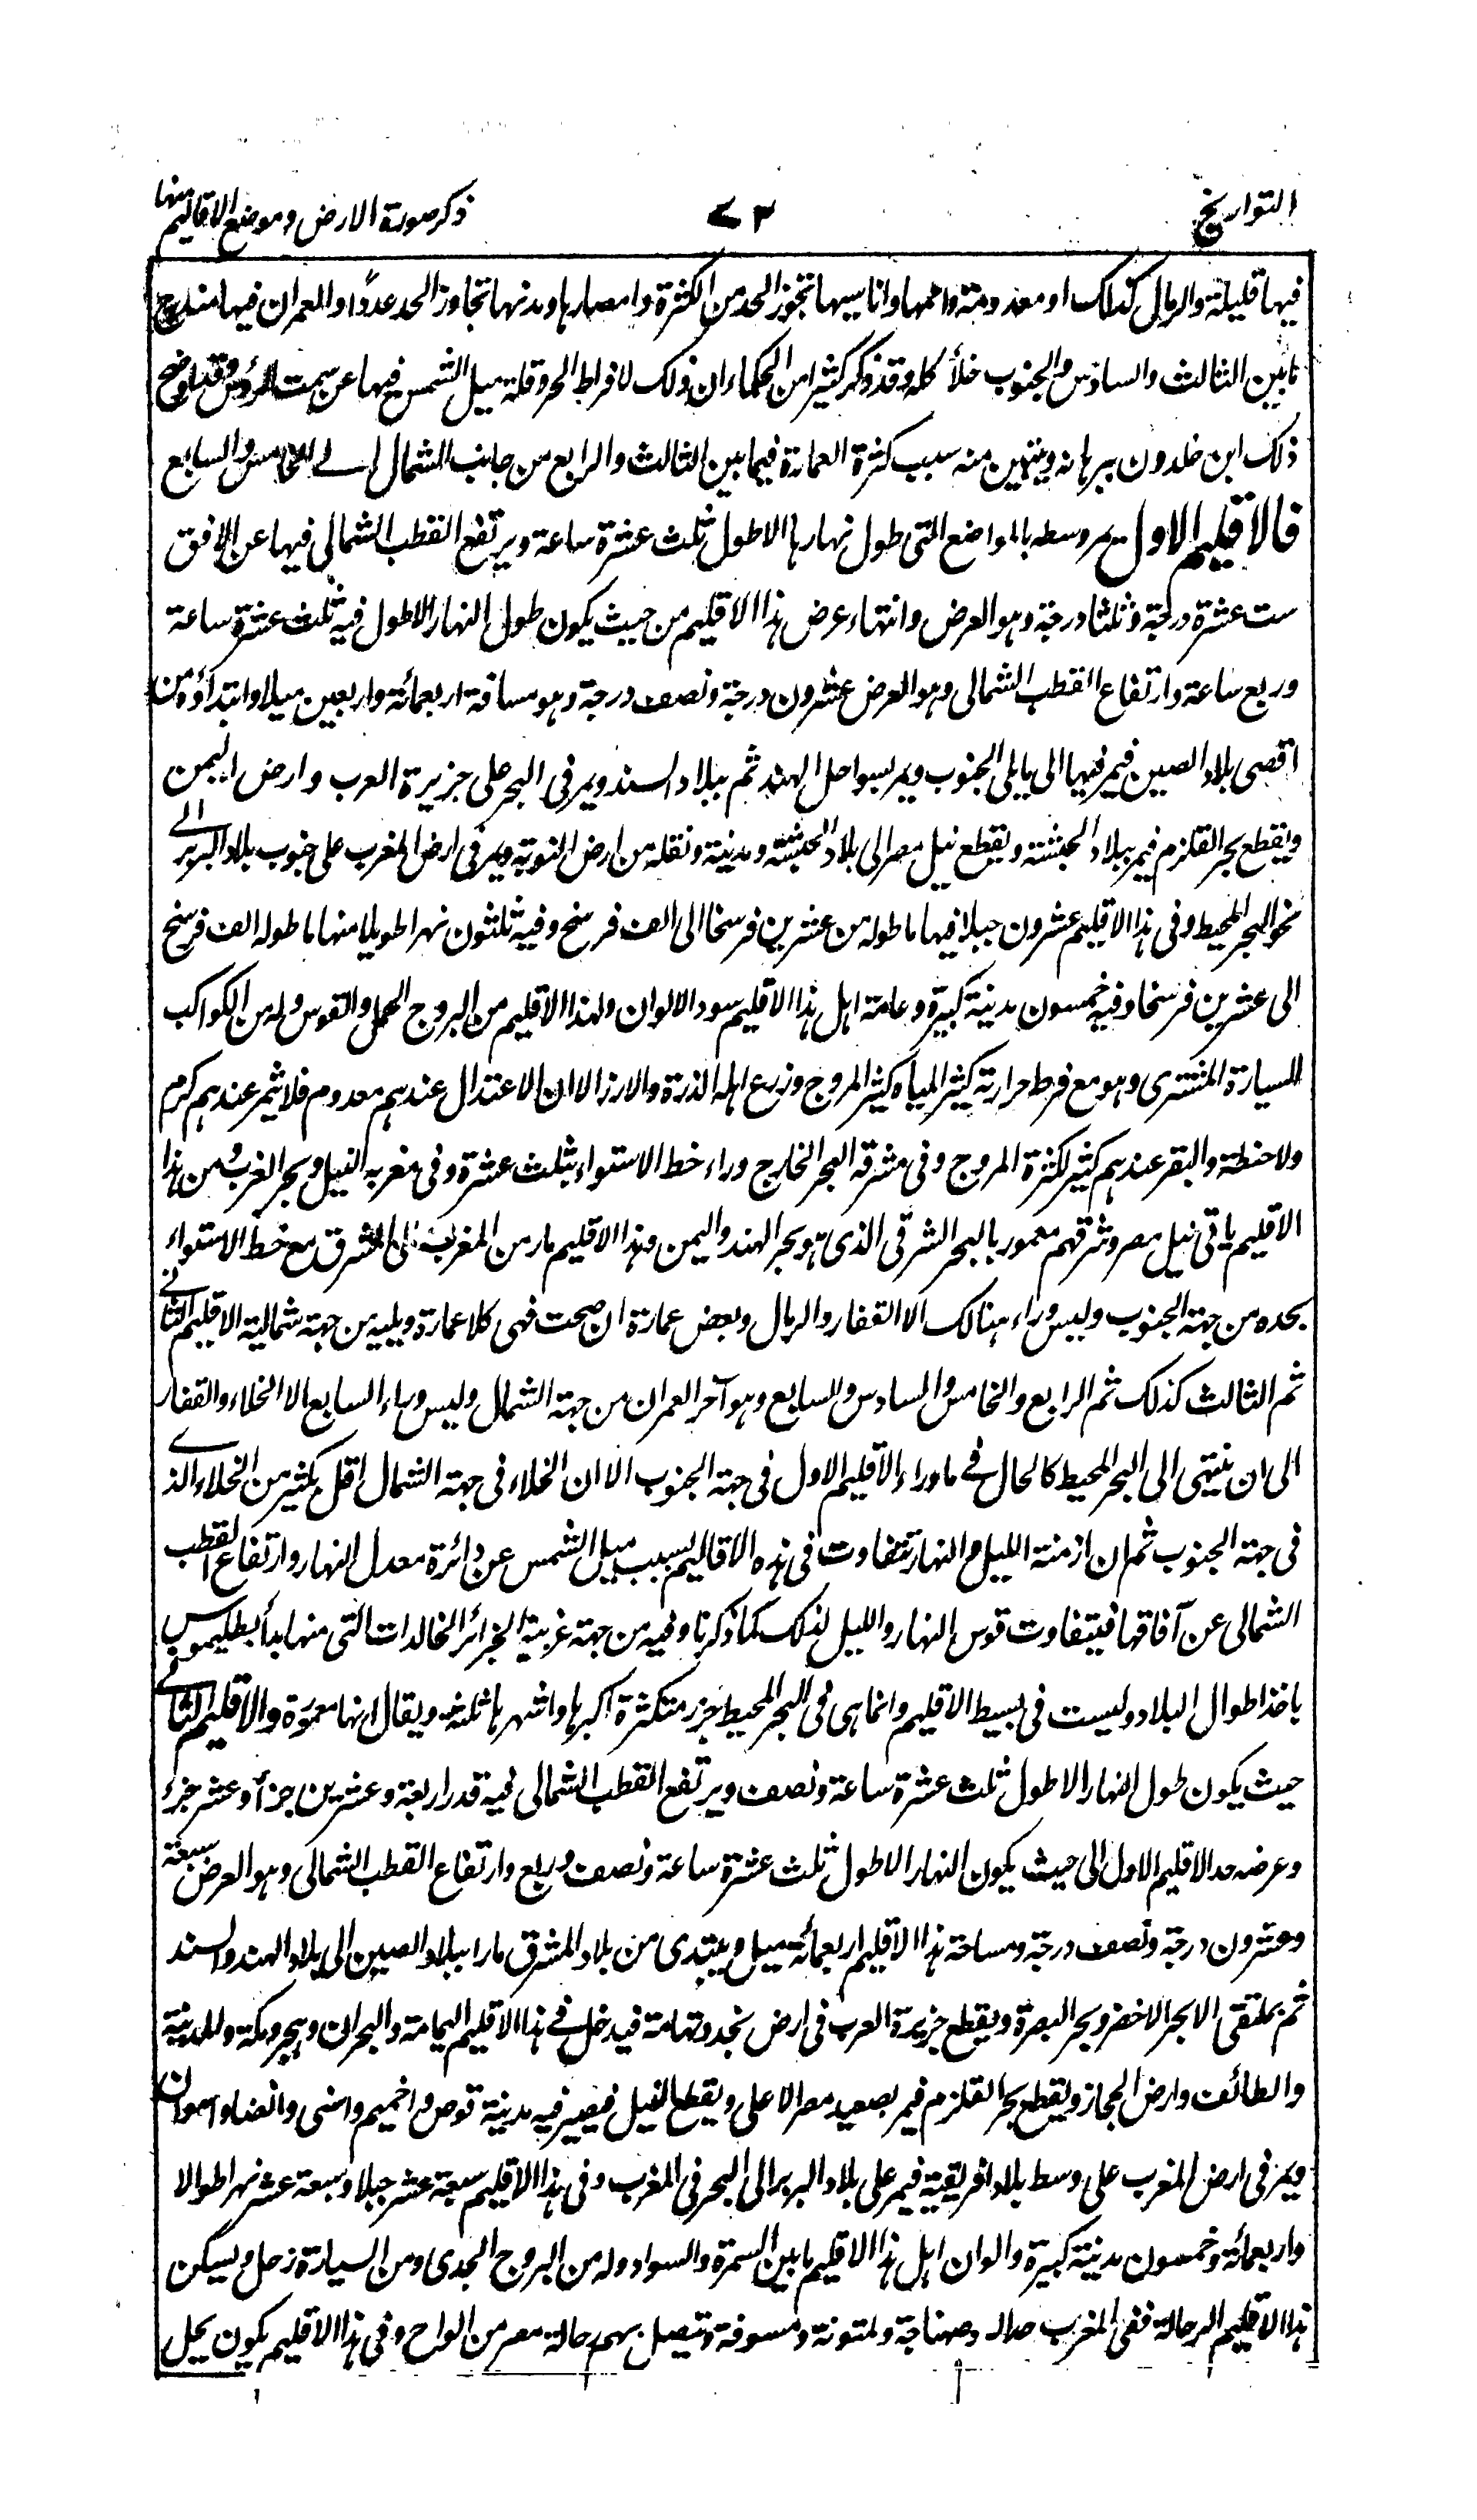 التواريخ ٧٣ ذكر صورة الارض وموضع الاقاليم منها
فيها قليلة والرمال كذلك او معدومة واممها واناسيها تجوز الحد من الكثرة وامصارها ومدنها تجاوز الحد عددًا والعمران فيها مندرج
ما بين الثالث والسادس والجنوب خلأ كله وقد ذكر كثير من الحكماء ان ذلك لافراط الحر وقلة ميل الشمس فيها عن سمت الرؤس وقد اوضح
ذلك ابن خلدون ببرهانه ويتبين منه سبب كثرة العمارة فيما بين الثالث والرابع من جانب الشمال الى الخامس والسابع
فالاقليم الاول يمر وسطه بالمواضع التى طول نهارها الاطول ثلث عشرة ساعة ويرتفع القطب الشمالى فيها عن الافق
ست عشرة درجة وثلثا درجة وهو العرض وانتهاء عرض هذا الاقليم من حيث يكون طول النهار الاطول فيه ثلث عشرة ساعة
وربع ساعة وارتفاع القطب الشمالى وهو العرض عشرون درجة ونصف درجة وهو مسافة اربعمائة واربعين ميلا وابتداؤه من
اقصى بلاد الصين فيمر فيها الى ما يلى الجنوب ويمر بسواحل الهند ثم ببلاد السند ويمر فى البحر على جزيرة العرب وارض اليمن
ويقطع بحر القلزم فيمر ببلاد الحبشة ويقطع نيل مصر الى بلاد الحبشة ومدينة دنقلة من ارض النوبة ويمر فى ارض المغرب على جنوب بلاد البربر الى
نحو البحر المحيط وفى هذا الاقليم عشرون جبلا فيها ما طوله من عشرين فرسخا الى الف فرسخ وفيه ثلثون نهرا طويلا منها ما طوله الف فرسخ
الى عشرين فرسخا وفيه خمسون مدينة كبيرة وعامة اهل هذا الاقليم سود الالوان ولهذا الاقليم من البروج الحمل والقوس وله من الكواكب
السيارة المشترى وهو مع فرط حرارته كثير المياه كثير المروج وزرع اهله الذرة والارز الا ان الاعتدال عندهم معدوم فلا يثمر عندهم كرم
ولا حنطة والبقر عندهم كثير لكثرة المروج وفى مشرقه البحر الخارج وراء خط الاستواء بثلث عشرة وفى مغربه النيل وبحر الغرب ومن هذا
الاقليم ياتى نيل مصر وشرقهم معمور بالبحر الشرقى الذى هو بحر الهند واليمن وهذا الاقليم مار من المغرب الى المشرق مع خط الاستواء
بحده من جهة الجنوب وليس وراء هنالك الا القفار والرمال وبعض عمارة ان صحت فهى كلا عمارة ويليه من جهة شمالية الاقليم الثانى
ثم الثالث كذلك ثم الرابع والخامس والسادس والسابع وهو آخر العمران من جهة الشمال وليس وراء السابع الا الخلاء والقفار
الى ان ينتهى الى البحر المحيط كالحال فى ما وراء الاقليم الاول فى جهة الجنوب الا ان الخلاء فى جهة الشمال اقل بكثير من الخلاء الذى
فى جهة الجنوب ثم ان ازمنة الليل والنهار تتفاوت فى هذه الاقاليم بسبب ميل الشمس عن دائرة معدل النهار وارتفاع القطب
الشمالى عن آفاقها فيتفاوت قوس النهار والليل لذلك كما ذكرنا وفيه من جهة غربية الجزائر الخالدات التى منها بدأ بطليموس
ياخذ اطوال البلاد وليست فى بسيط الاقليم وانما هى فى البحر المحيط جزر متكثرة اكبرها واشهرها ثلثة ويقال انها معمورة والاقليم الثانى
حيث يكون طول النهار الاطول ثلث عشرة ساعة ونصف ويرتفع القطب الشمالى فيه قدر اربعة وعشرين جزأ وعشر جزء
وعرضه حد الاقليم الاول الى حيث يكون النهار الاطول ثلث عشرة ساعة ونصف وربع وارتفاع القطب الشمالى وهو العرض سبعة
وعشرون درجة ونصف درجة ومساحة هذا الاقليم اربعمائة ميل ويبتدى من بلاد المشرق مارا ببلاد الصين الى بلاد الهند والسند
ثم بملتقى الابحر الاخضر وبحر البصرة ويقطع جزيرة العرب فى ارض نجد وتهامة فيدخل فى هذا الاقليم اليمامة والبحران وهجر ومكة والمدينة
والطائف وارض الحجاز ويقطع بحر القلزم فيمر بصعيد مصر الاعلى ويقطع النيل فيصير فيه مدينة قوص واخميم واسنى وانصنا واسوان
ويمر فى ارض المغرب على وسط بلاد افريقية فيمر على بلاد البربر الى البحر فى المغرب وفى هذا الاقليم سبعة عشر جبلا وسبعة عشر نهرا طوالا
واربعمائة وخمسون مدينة كبيرة والوان اهل هذا الاقليم ما بين السمرة والسواد وله من البروج الجدى ومن السيارة زحل ويسكن
هذا الاقليم الرحالة ففى المغرب صدالہ وصنهاجة ولمتونة ومسوفة ويتصل بهم رحالة مصر من الواح وفى هذا الاقليم يكون يحل